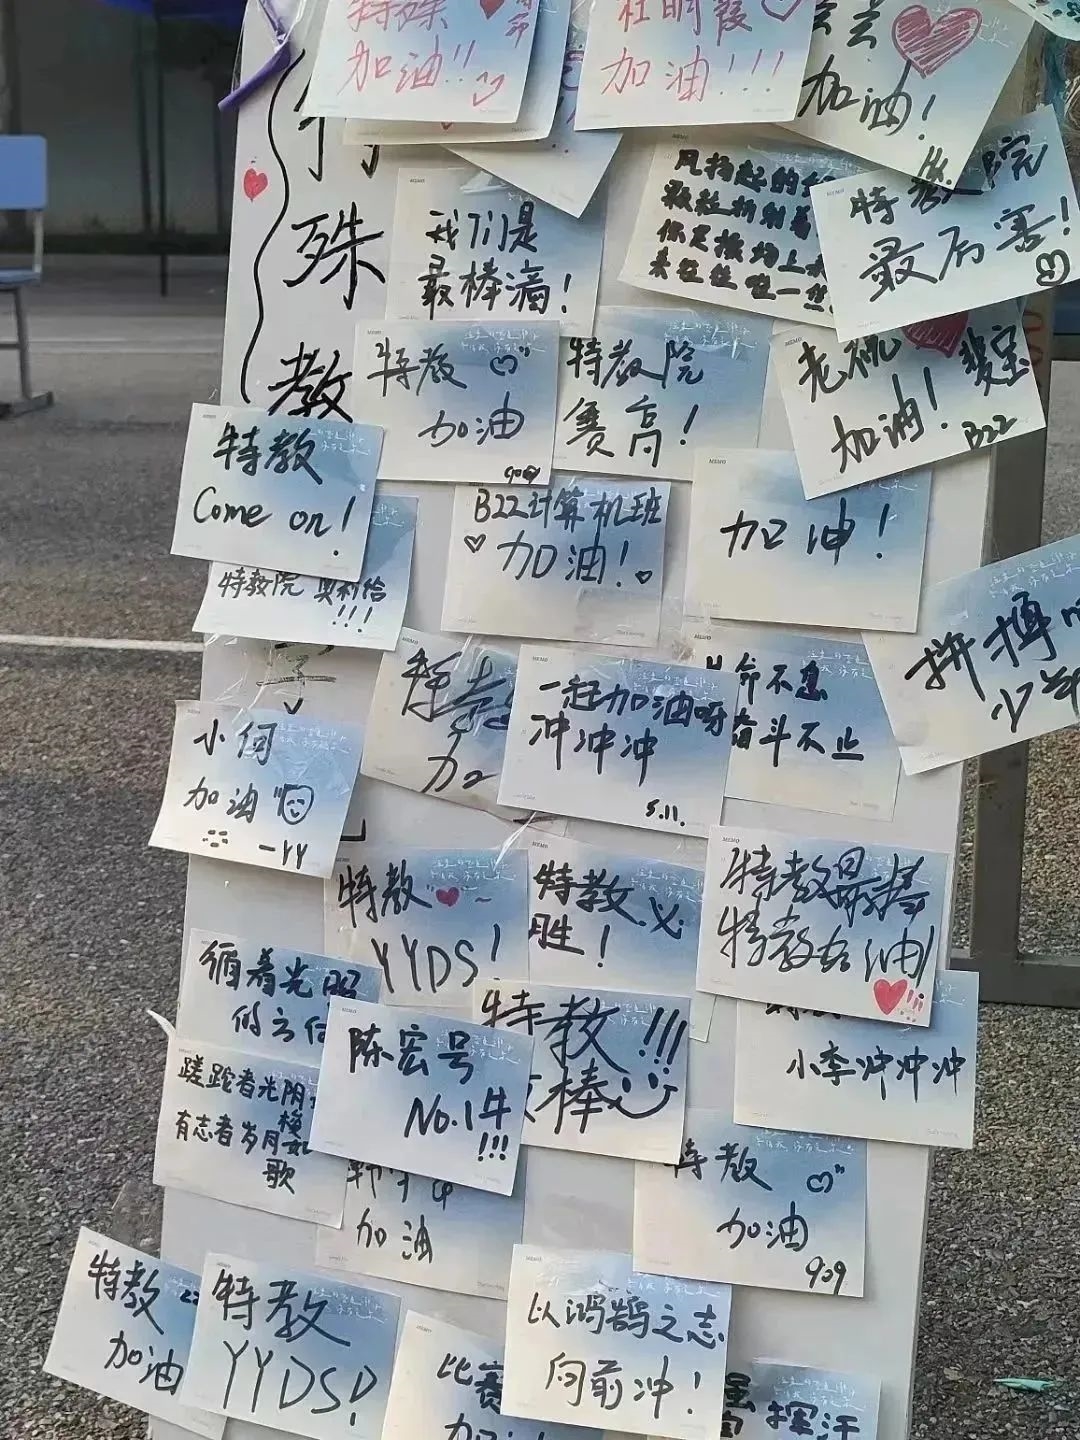 特殊
加油!!
加油!!!
加油!
特教院
最厉害!
风扬起的
颗粒折射着
你是操场上
来往往唯一
特
殊
教
我们是
最棒滴!
特教
加油
909
特教院
赛高!
老祝
加油!
B22
特教
Come on!
特教院 奥利给
!!!
B22计算机班
加油!
加油!
拼搏
学
小何
加油
—YY
特教
加
一起加油呀
冲冲冲
5.11.
命不息
奋斗不止
特教
YYDS!
特教必
胜!
特教最棒
特教加油!
循着光照
的方向
陈宏号
NO.1牛
!!!
特教!!!
棒
小李冲冲冲
蹉跎者光阴
有志者岁月
如
歌
加油
特教
加油
909
特教
加油
特教
YYDS!
以鸿鹄之志
向前冲!
比赛
加油
挥汗